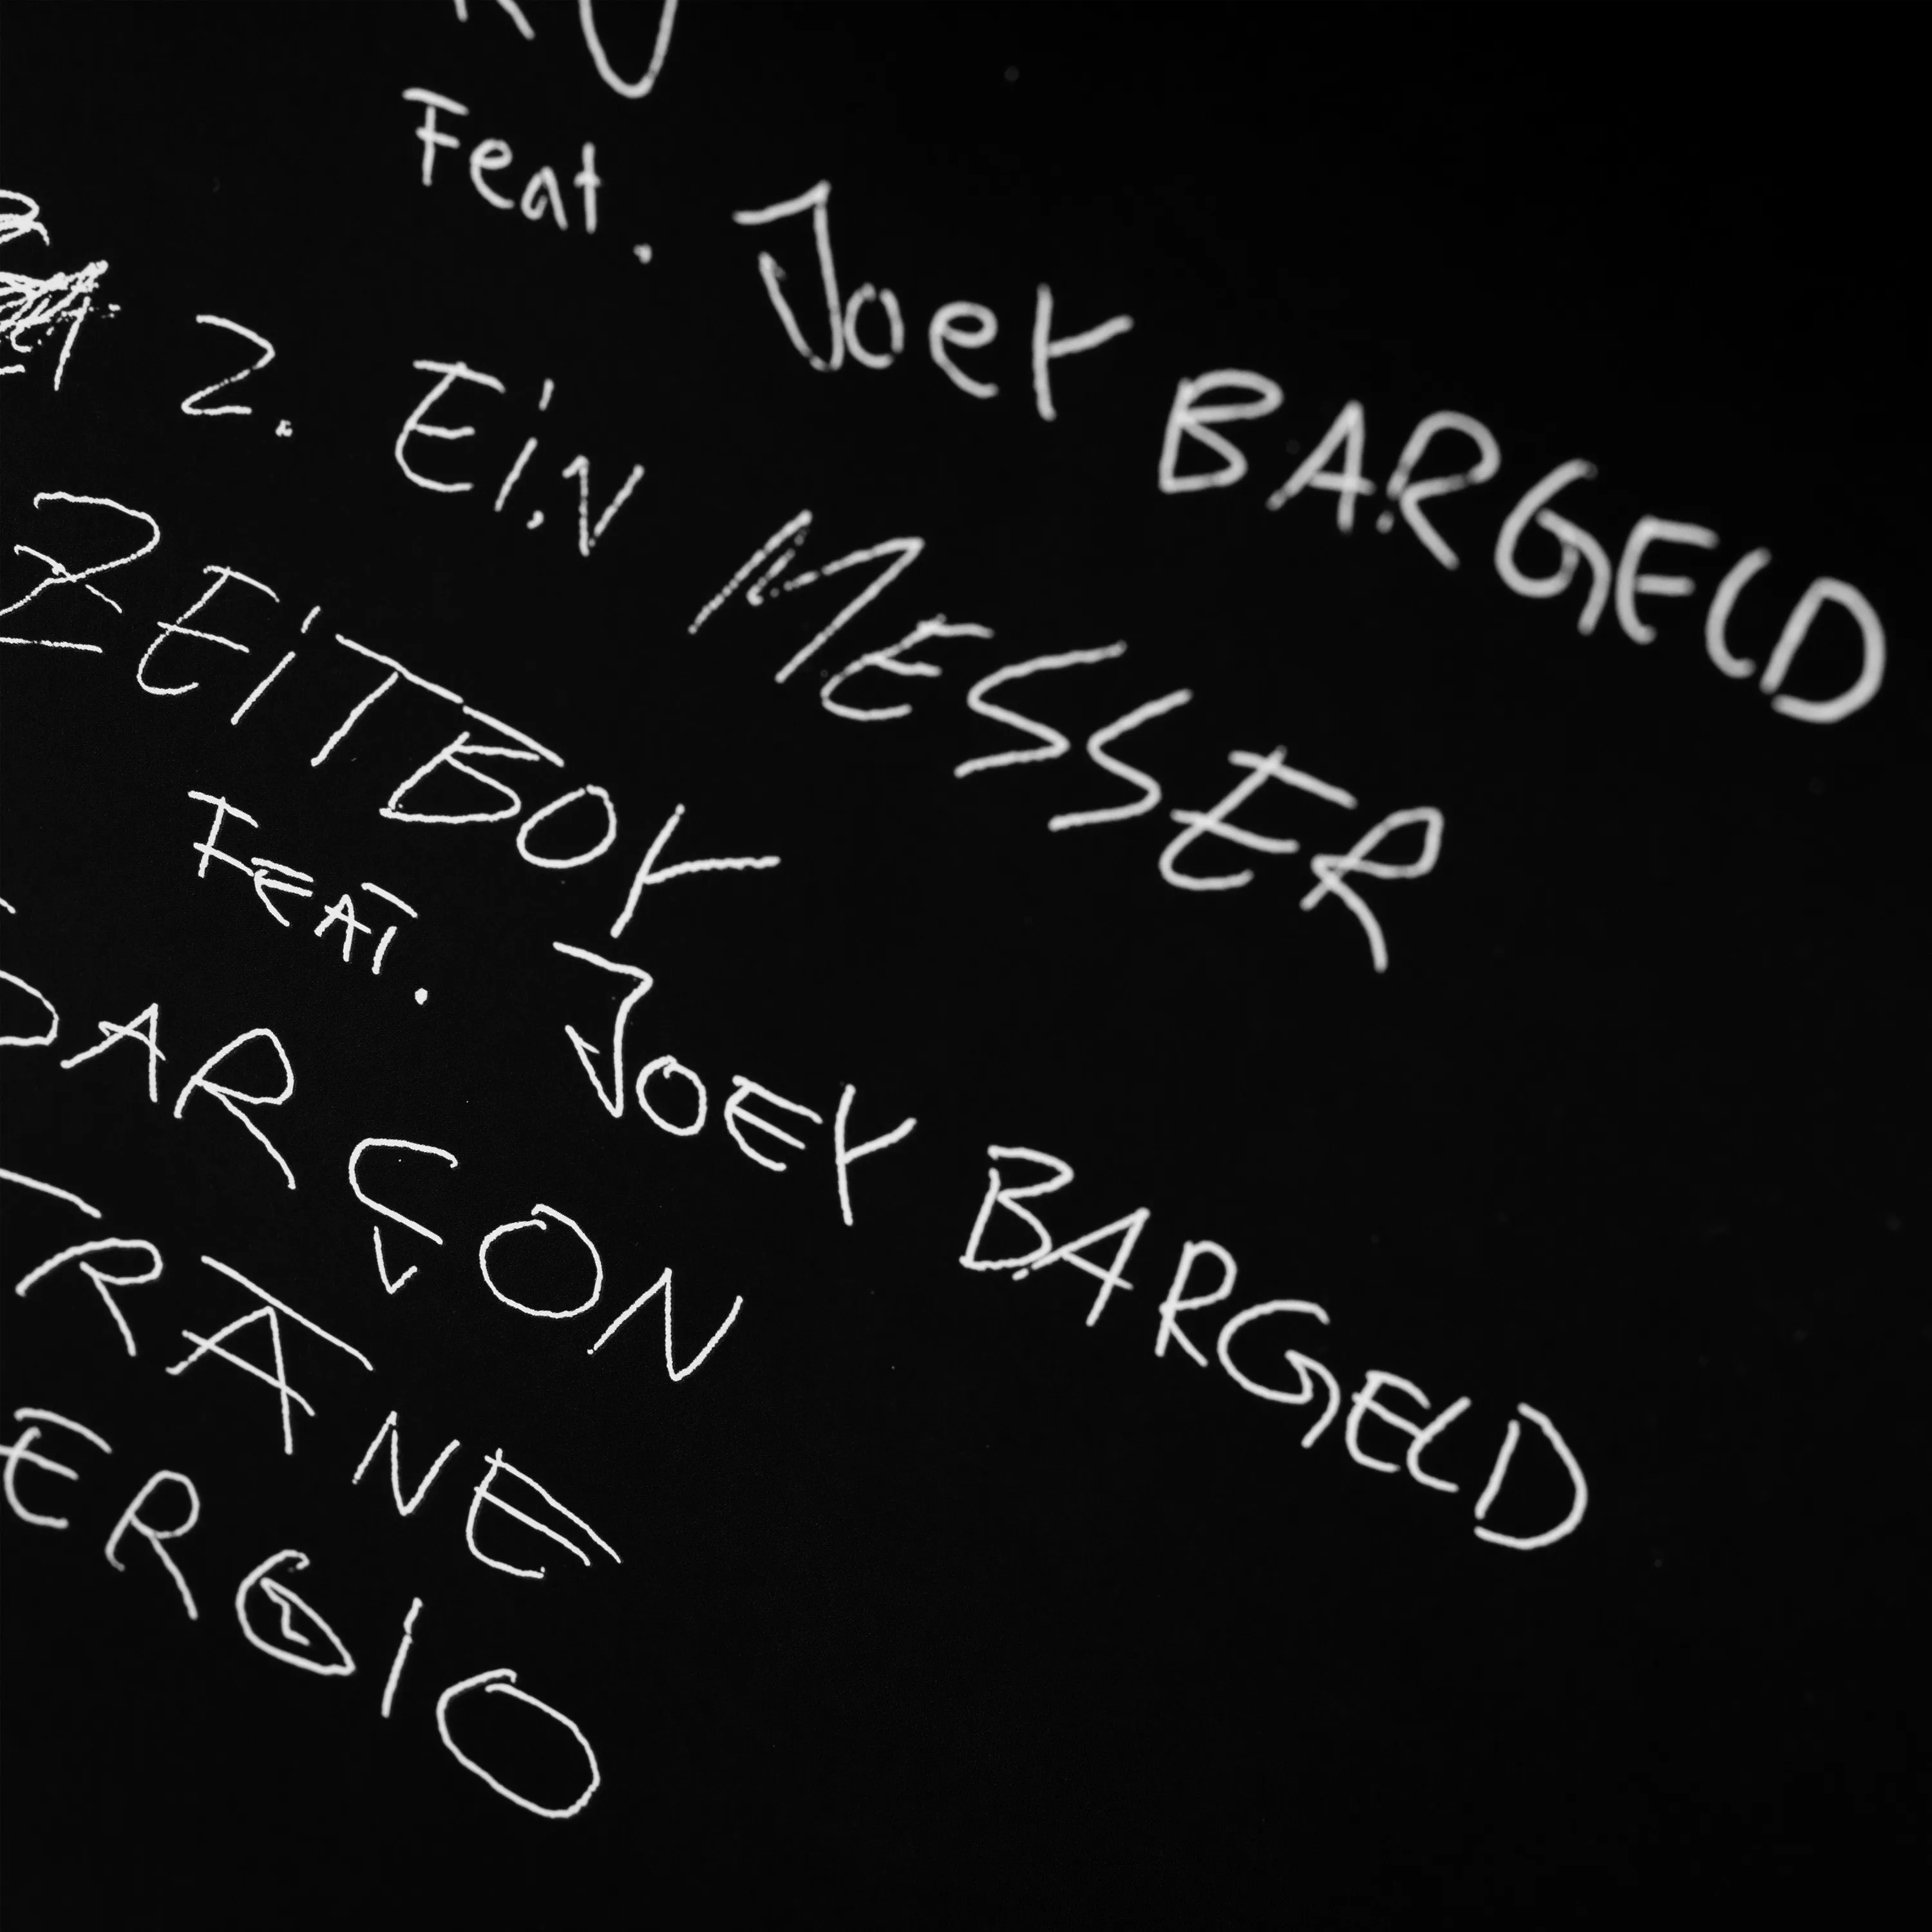 Feat. Joey BARGELD
2. EiN MESSER
ZEiTBOY
FEAT. JOEY BARGELD
GARÇON
TRÄNE
SERGIO